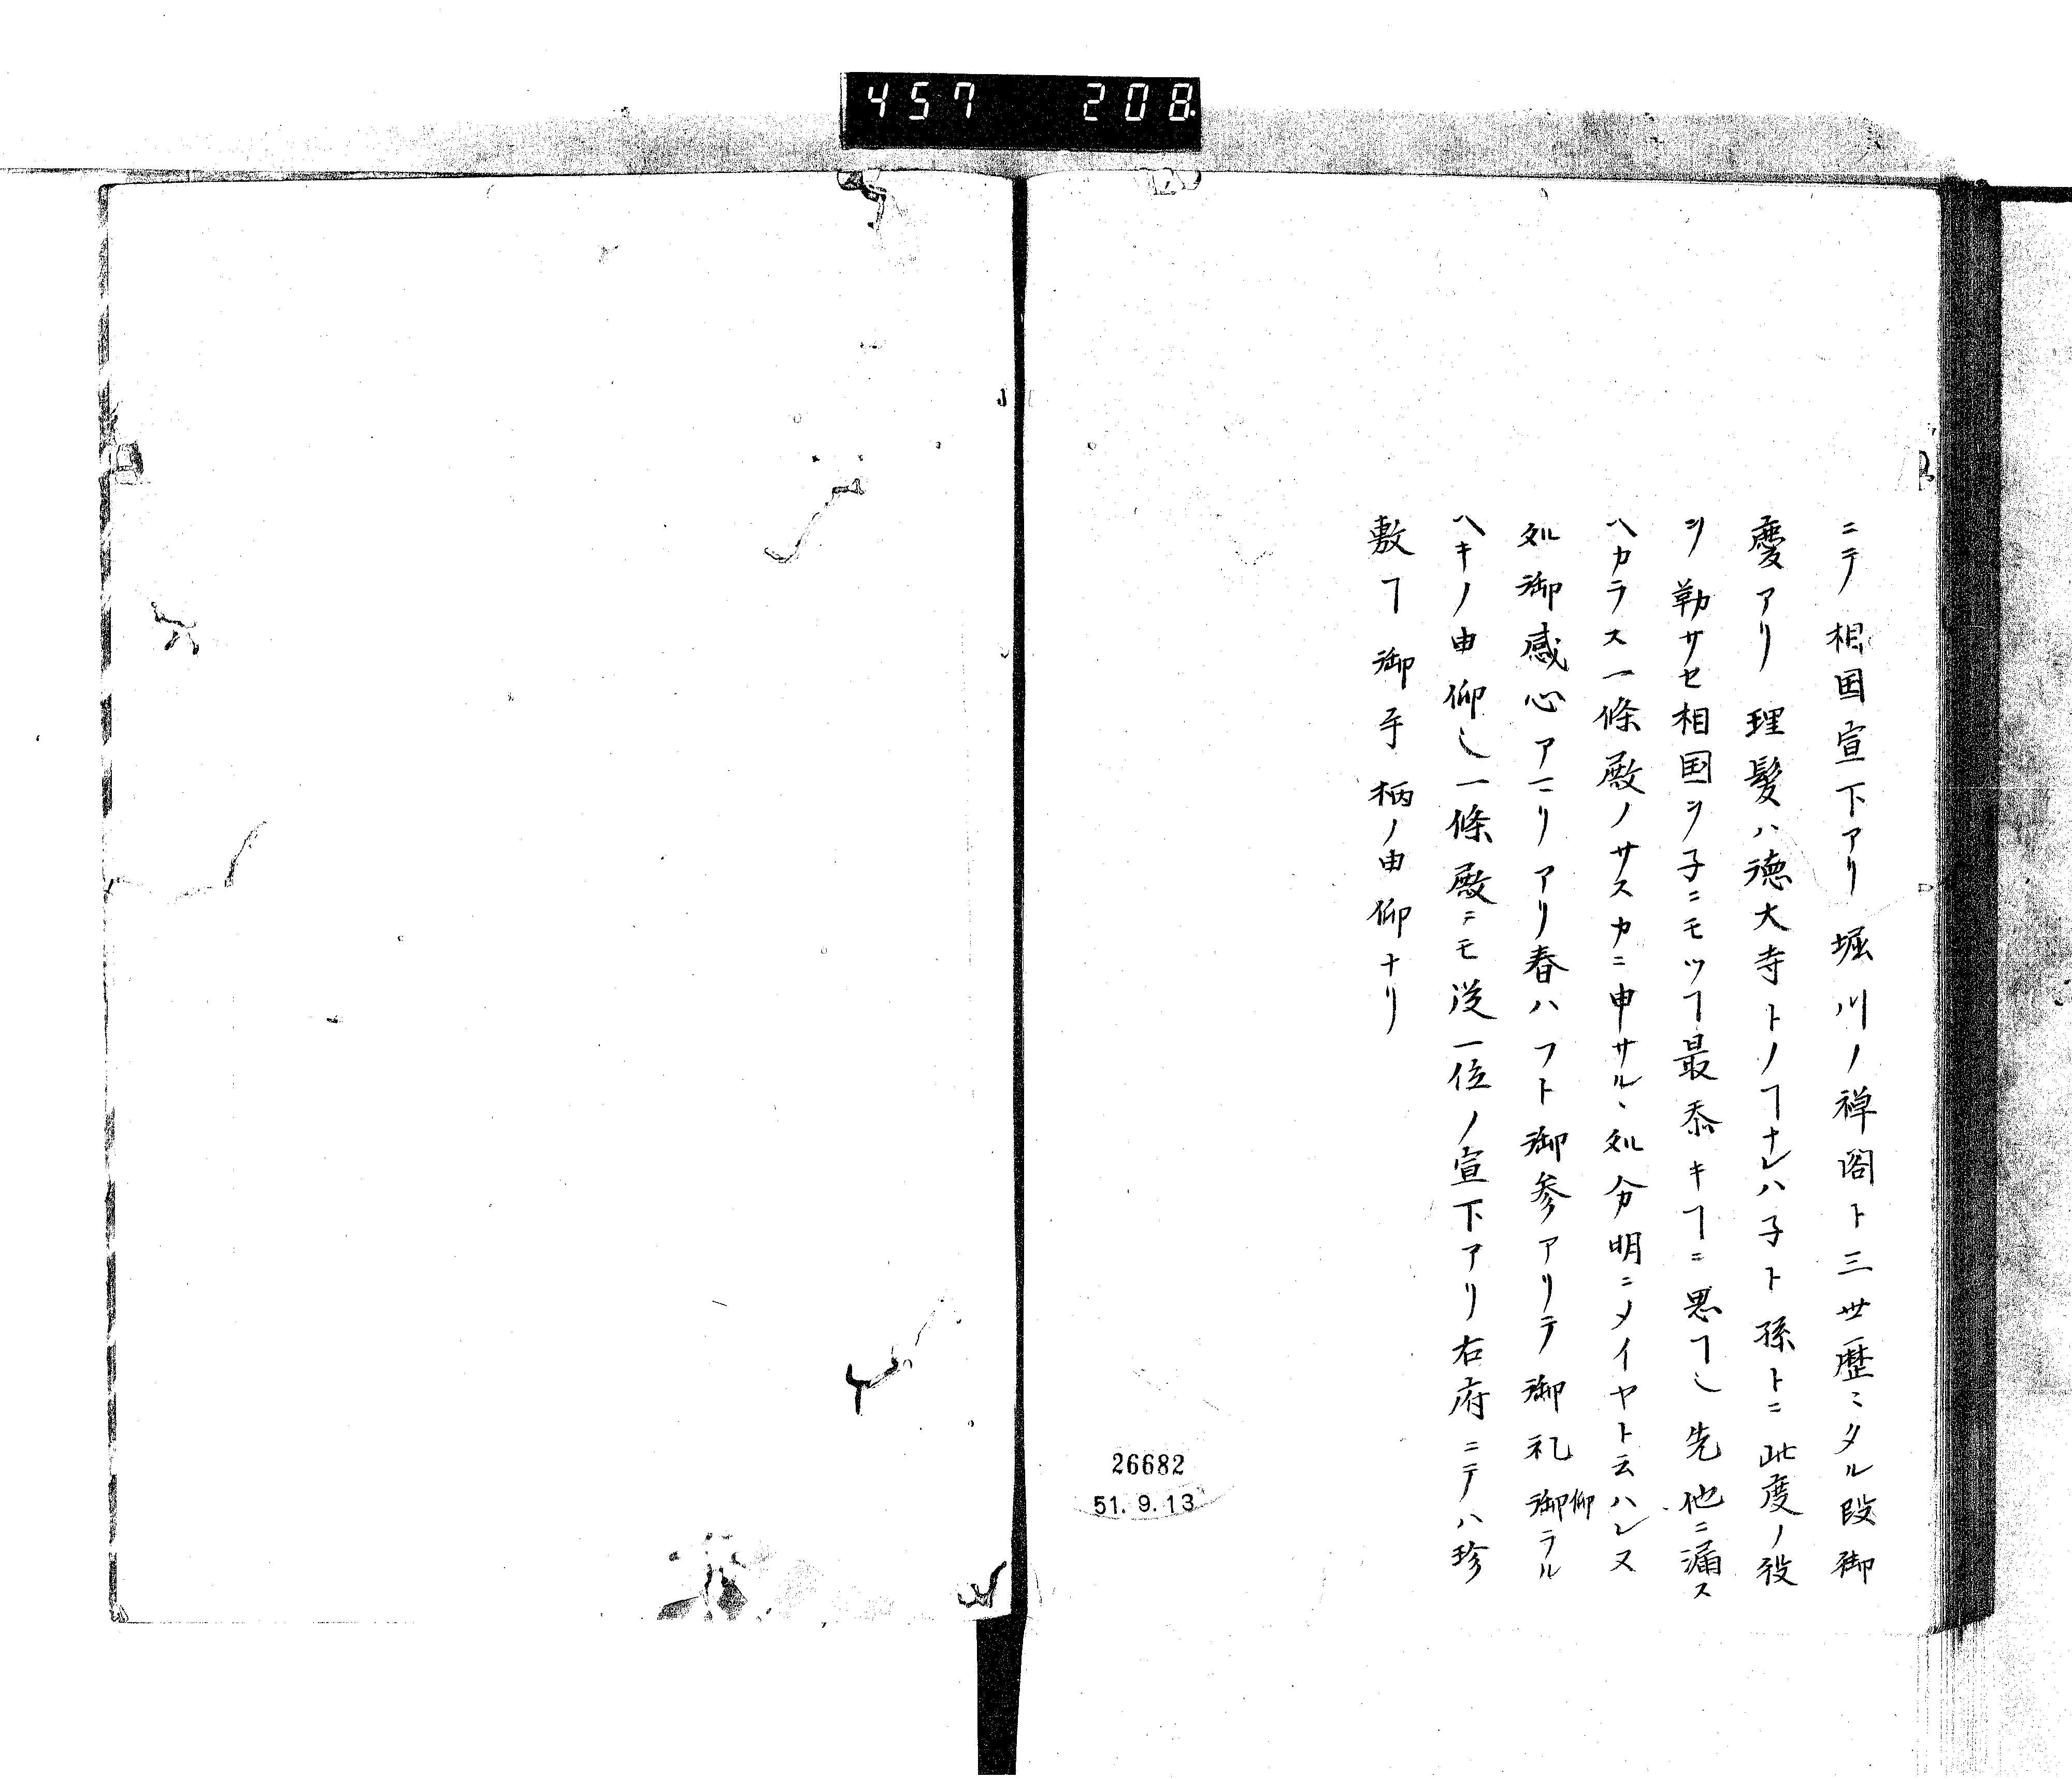 457 208
ニテ相国宣下アリ堀川ノ禅閤ト三世歴ミタル段御
慶アリ理髪ハ徳大寺トノヿナレハ子ト孫トニ此度ノ役
ヲ勤サセ相国ヲ子ニモツヿ最忝キヿニ思ヿ乀先他ニ漏ス
ヘカラス一條殿ノサスカニ申サル丶処分明ニメイヤト云ハレヌ
処御感心アニリアリ春ハフト御参アリテ御礼御仰ラル
ヘキノ由仰乀一條殿ニモ従一位ノ宣下アリ右府ニテハ珍
敷ヿ御手柄ノ由仰ナリ
26682
51.9.13